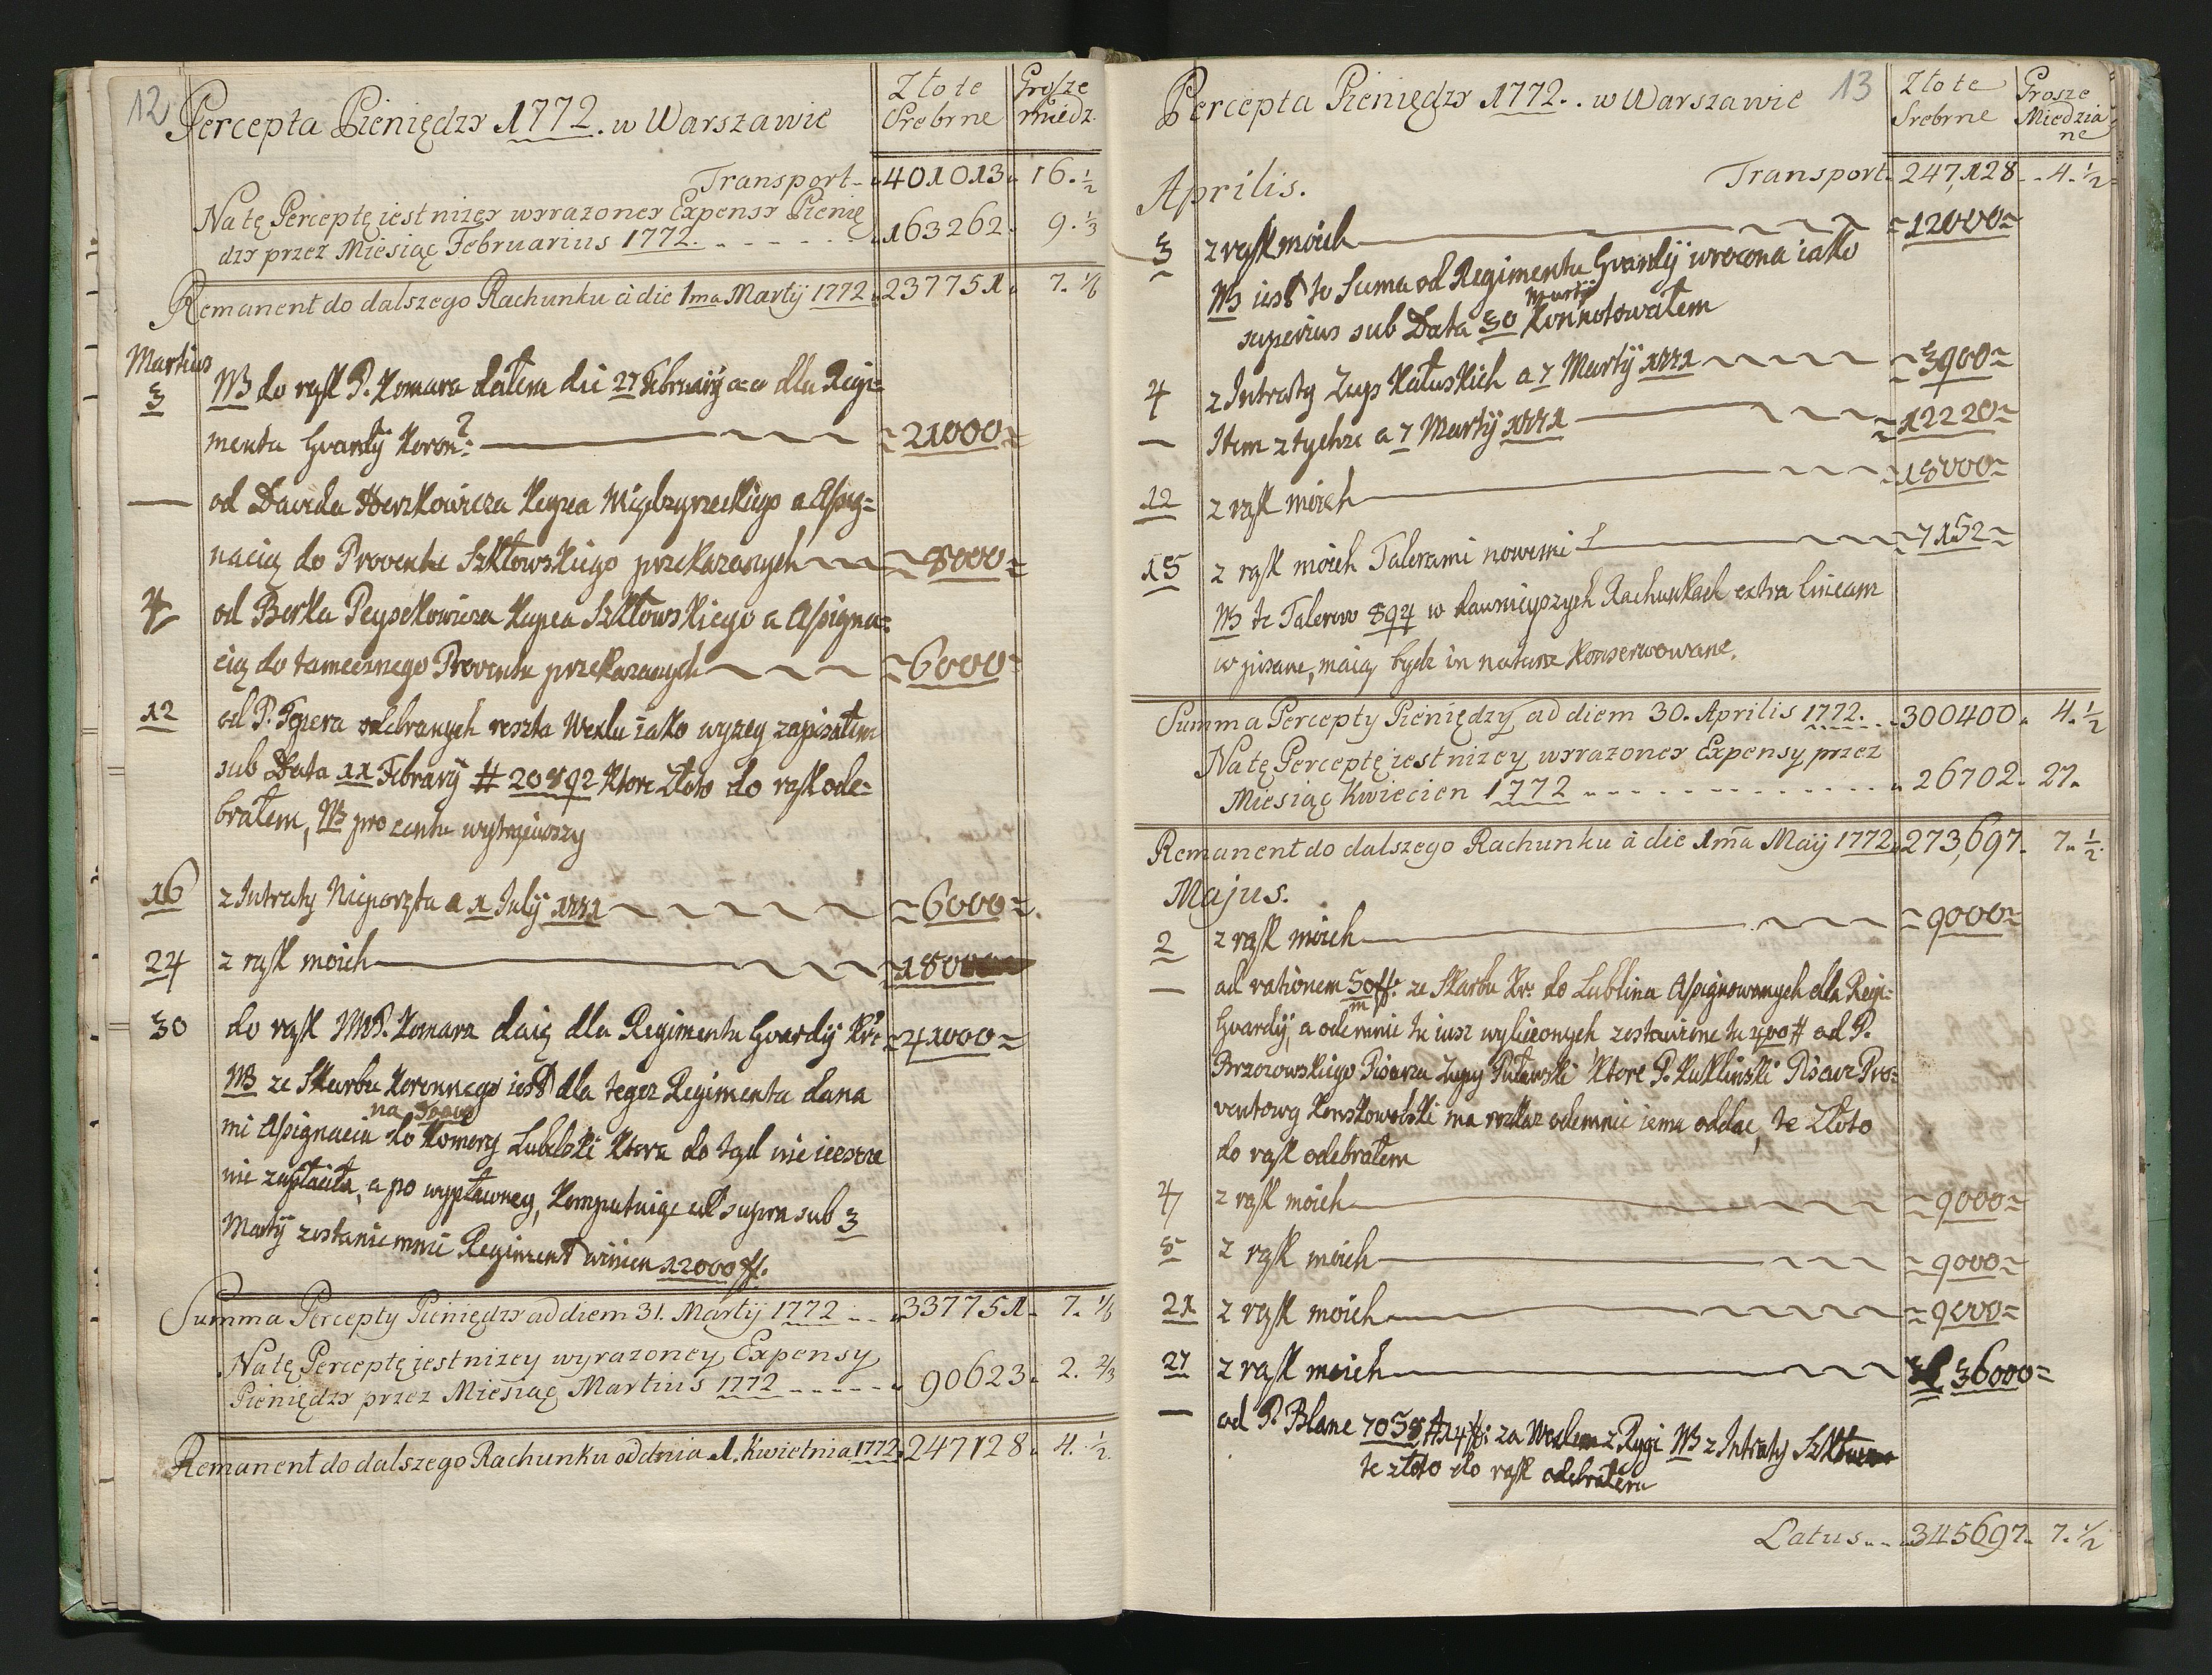 12 Percepta Pieniędzy 1772. w Warszawie
Złote Srebrne
Grosze miedz.
Transport 401013 16. 1/2
Na tę Perceptę iest nizey wyrazoney Expensy Pienię
dzy przez Miesiąc Februarius 1772. 163262. 9. 1/3
Remanent do dalszego Rachunku à die 1ma Martij 1772 237751 7. 1/6
Martius
3 NB do rąk P. Komara dałem die 27 Februarij a.c. dla Regi=
menta Gvardij Koron: 21000
— od Davida Herzkowicza Kupca Międzyrzeckiego a Assyg=
nacią do Proventu Szkłowskiego przekazanych 8000
4 od Berka Peysekowicza Kupca Szkłowskiego a Assigna=
cią do tamecznego Proventu przekazanych 6000
12 od P. Tepera odebranych reszta Wexlu iako wyzey zapisałem
sub Data 11 Februarij # 20892 Ktore Złoto do rąk ode=
brałem, NB procenta wytrąciwszy
16 z Intraty Nieporęta a 1 July 1771 6000
24 z rąk moich 18000
30 do rąk MP. Komara daią dla Regimentu Gvardij Kor: 41000
NB ze Skarbu Koronnego iest dla tegoz Regimentu dana
na 50000
mi Assignacia do Komory Lubelski Ktora do tąd nie ieszcze
nie zapłaciła, a po wypłaconey, Komputuiąc ad supra sub 3
Martij zostanie mnie Regiment winien 12000 ff.
Summa Percepty Pieniędzy ad diem 31. Martij 1772 337751 7. 1/6
Na tę Perceptę jest nizey wyrazoney Expensy
Pieniędzy przez Miesiąc Martius 1772 90623 2. 2/3
Remanent do dalszego Rachunku od dnia 1. Kwietnia 1772 247128 4. 1/2
Percepta Pieniędzy 1772. w Warszawie 13
Złote Srebrne
Grosze Miedziane
Transport 247,128 4. 1/2
Aprilis.
3 z rąk moich 12000
NB iest to Suma od Regimentu Gvardij wrocona iako
Martij
superius sub Data 30 Konnotowałem
4 z Intraty Zup Kałuskich a 7 Martij 1771 3900
— Item z tychze a 7 Martij 1771 12220
12 z rąk moich 18000
15 z rąk moich Talerami nowemi 7152
NB te Talerow 894 w dawnieyszych Rachunkach extra lineam
wpisane, maią bydz in natura Konserwowane.
Summa Percepty Pieniędzy ad diem 30. Aprilis 1772. 300400 4. 1/2
Na tę Perceptę iest nizey wyrazoney Expensy przez
Miesiąc Kwiecien 1772 26702 27
Remanent do dalszego Rachunku à die 1ma Maij 1772 273,697 7. 1/2
Majus.
2 z rąk moich 9000
— ad rationem 50 m ff. ze Skarbu Kr. do Lublina Assignowanych dla Regi=
Gvardij, a odemnie tu iusz wyliczonych zostawione tu 400 # od P.
Brzozowskiego Pisarza Zupy Puławski Ktore P. Kukliński Pisarz Pro=
ventowy Konskowolski ma rozkaz odemnie iemu oddac, te Złoto
do rąk odebrałem
4 z rąk moich 9000
8 z rąk moich 9000
21 z rąk moich 9000
27 z rąk moich 36000
— od P. Blanc 7058 # 14 ff: za Wexlem z Rygi NB z Intraty
te złoto do rąk odebrałem
Latus 345697 7. 1/2